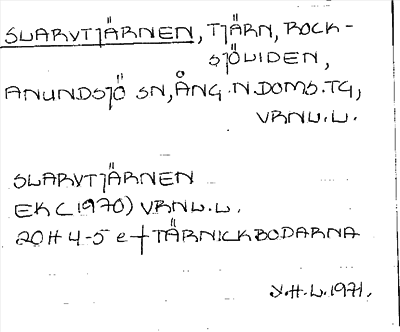 SLARVTJÄRNEN, TJÄRN, ROCK-
SJÖLIDEN,
ANUNDSJÖ SN, ÅNG. N. DOMS. TG,
VRNL.L.
SLARVTJÄRNEN
EK (1970) VRNL.L.
20H 4-5 e-f TÄRNICKBODARNA
Y.H.L. 1971.